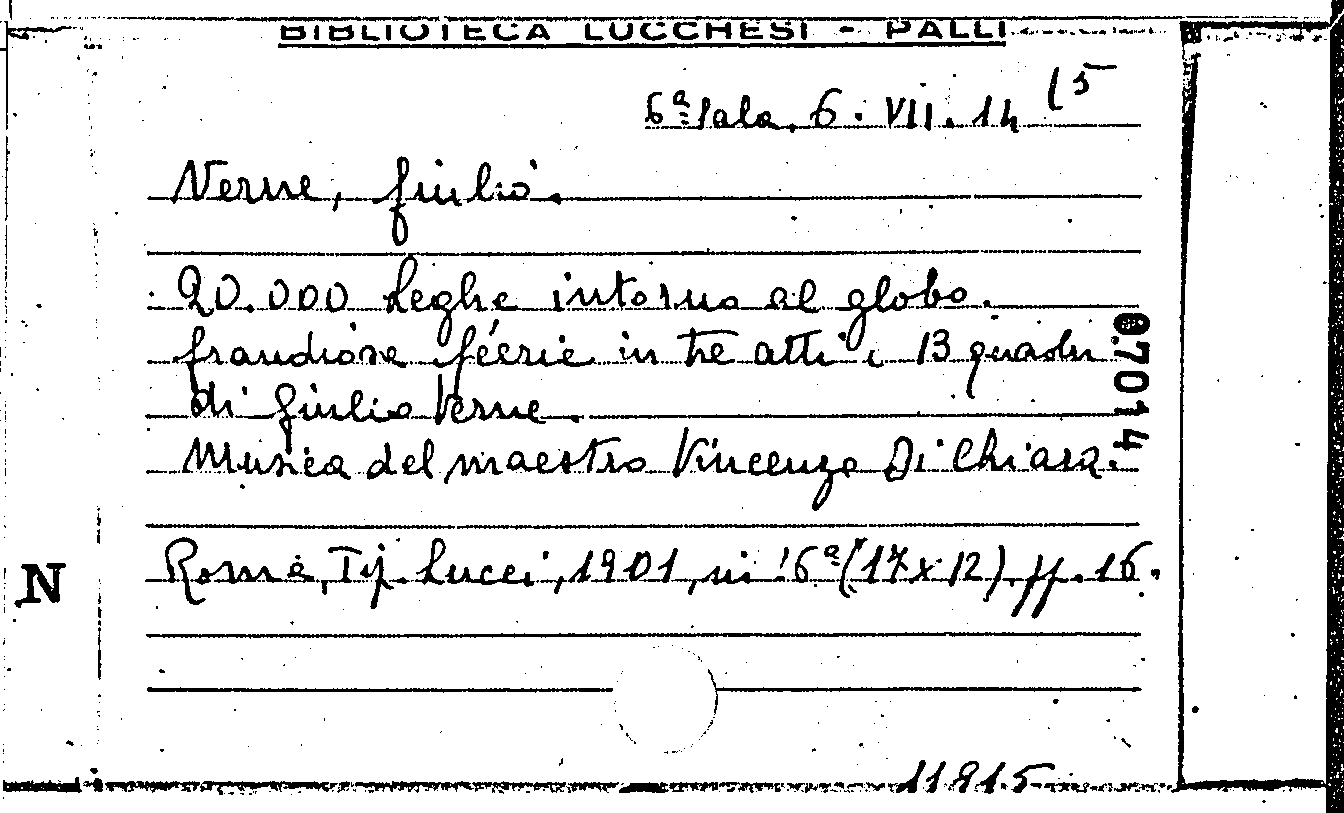 BIBLIOTECA LUCCHESI - PALLI
6ª Sala. 6. VII. 14 (5
Verne, Giulio.
20.000 Leghe intorno al globo.
Grandiosa féerie in tre atti e 13 quadri
di Giulio Verne.
Musica del maestro Vincenzo Di Chiara.
Roma, Tip. Lucci, 1901, in 16ª (17x12) pp. 16.
07014
N
11815